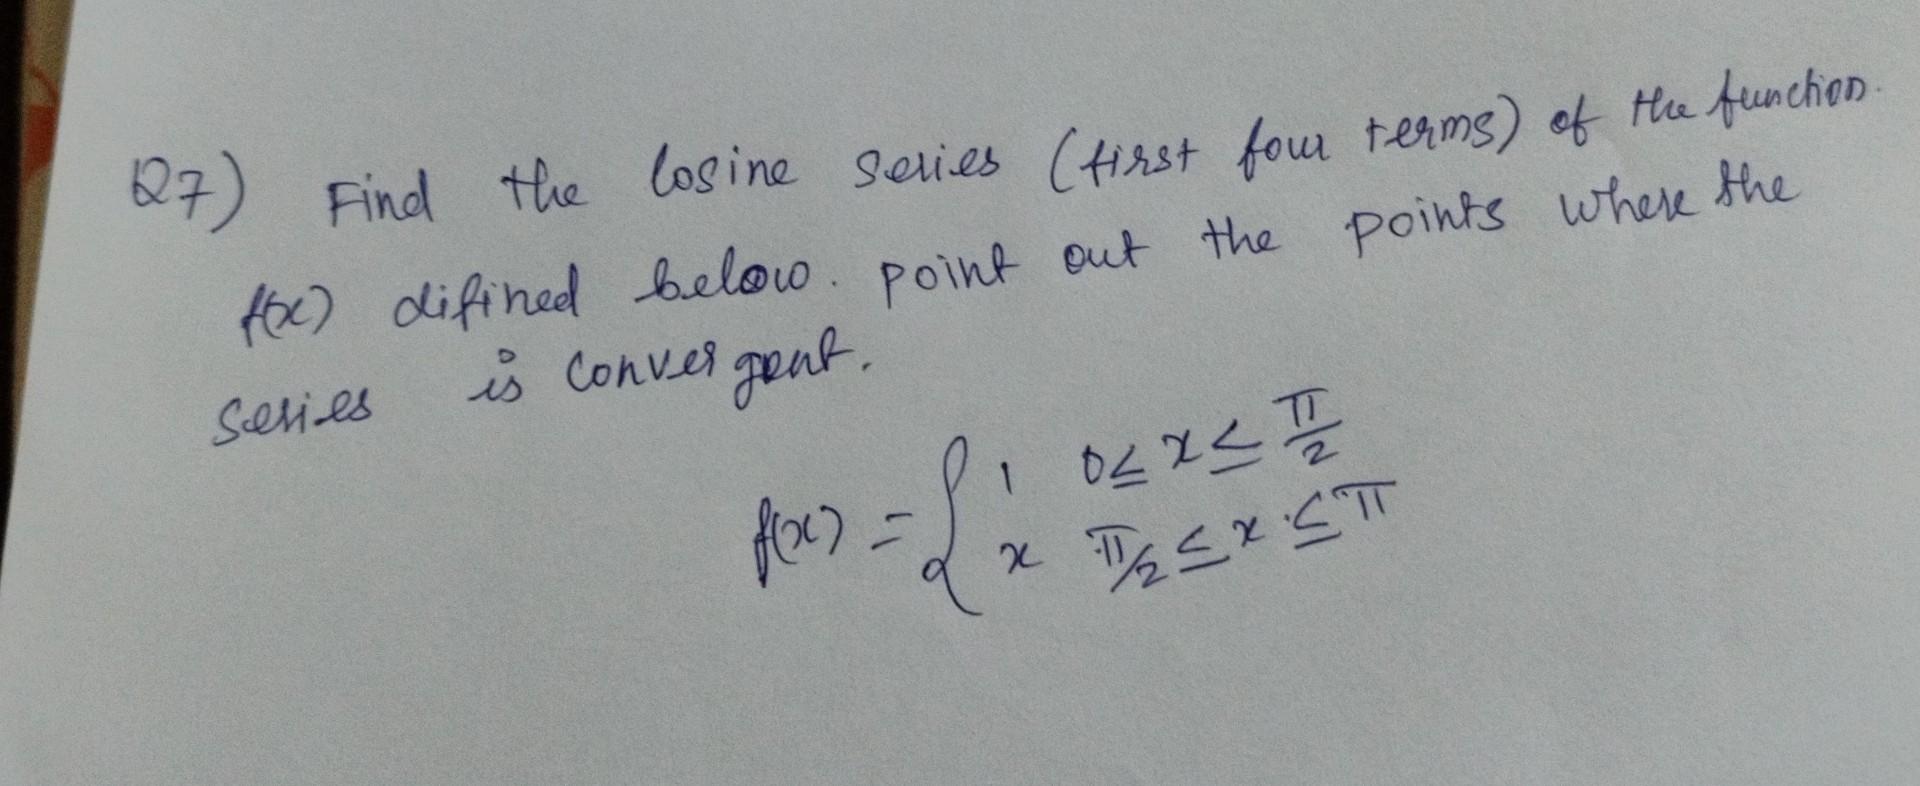 Q7) Find the Cosine Series (first four terms) of the function.
f(x) difined below. point out the points where the
series is convergent.
f(x) = { 1 0 ≤ x ≤ π/2
x π/2 ≤ x ≤ π